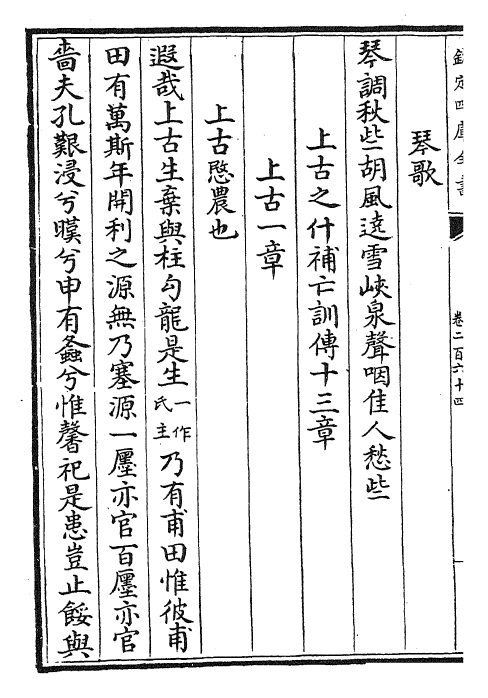 欽定四庫全書
卷二百六十四
一
琴歌
琴調秋些胡風遶雪峽泉聲咽佳人愁些
上古之什補亡訓傳十三章
上古一章
上古愍農也
遐哉上古生棄與柱勾龍是生一作氏主乃有甫田惟彼甫
田有萬斯年開利之源無乃塞源一廛亦官百廛亦官
嗇夫孔艱浸兮暵兮申有螽兮惟馨祀是患豈止餒與